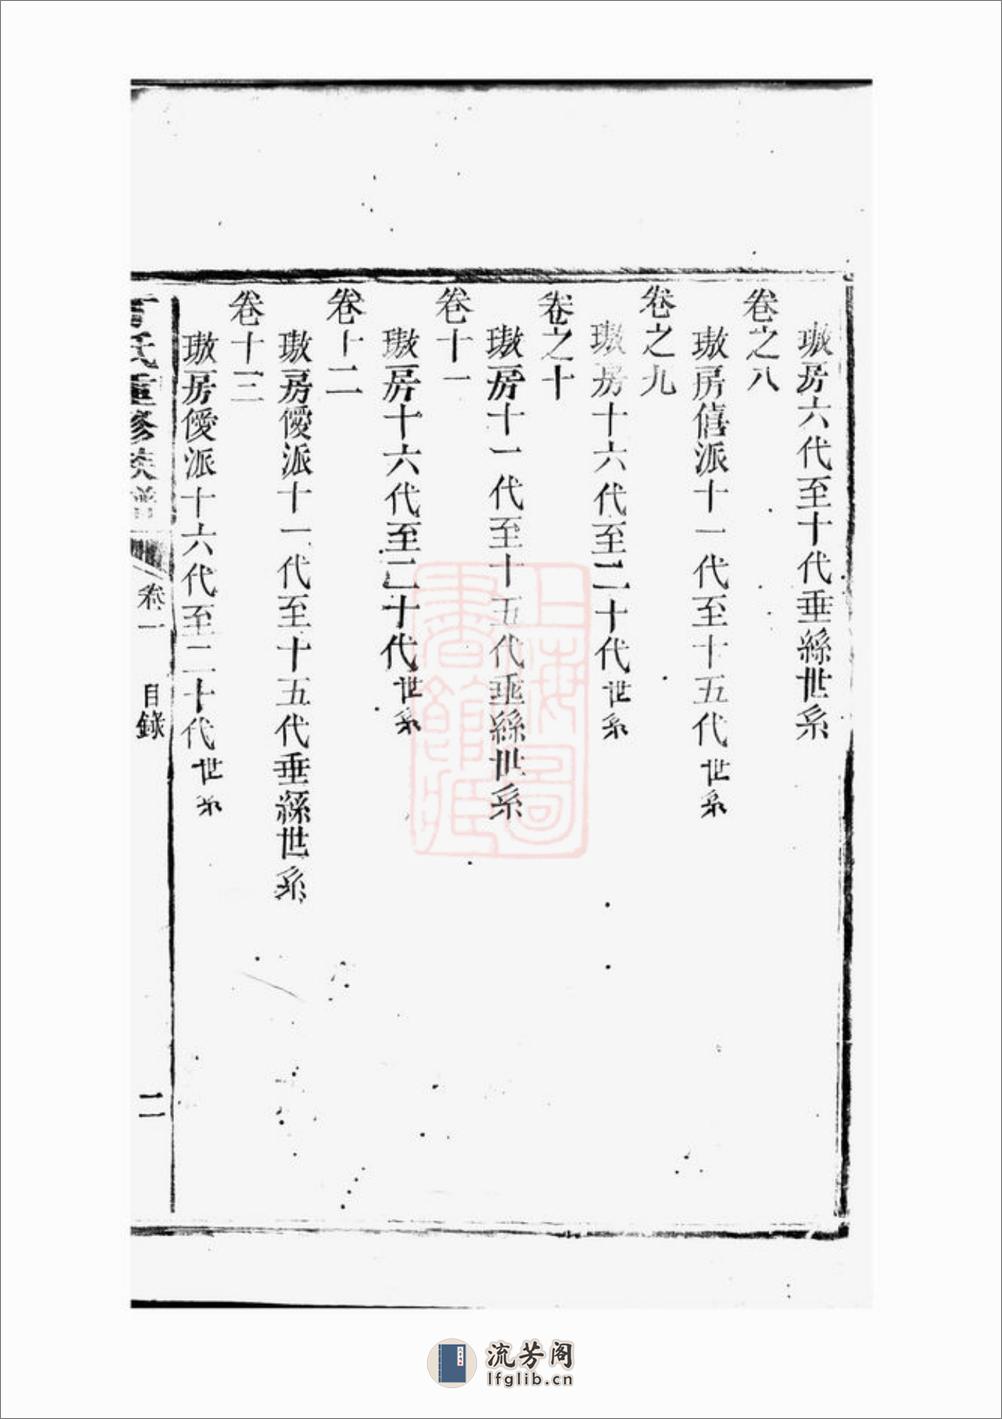 璈房六代至十代垂絲世系
卷之八
璈房僖派十一代至十五代世系
卷之九
璈房十六代至二十代世系
卷之十
璈房十一代至十五代垂絲世系
卷十一
璈房十六代至二十代世系
卷十二
璈房僾派十一代至十五代垂絲世系
卷十三
璈房僾派十六代至二十代世系
氏重修族譜
卷一
目錄
二
上海圖書館藏
流芳阁
lfglib.cn